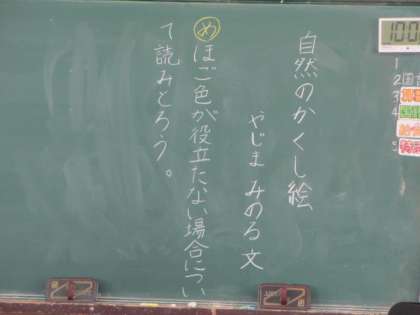 自然のかくし絵
やじま みのる 文
めほご色が役立たない場合につい
て読みとろう。
100
1
2国
3
4
5